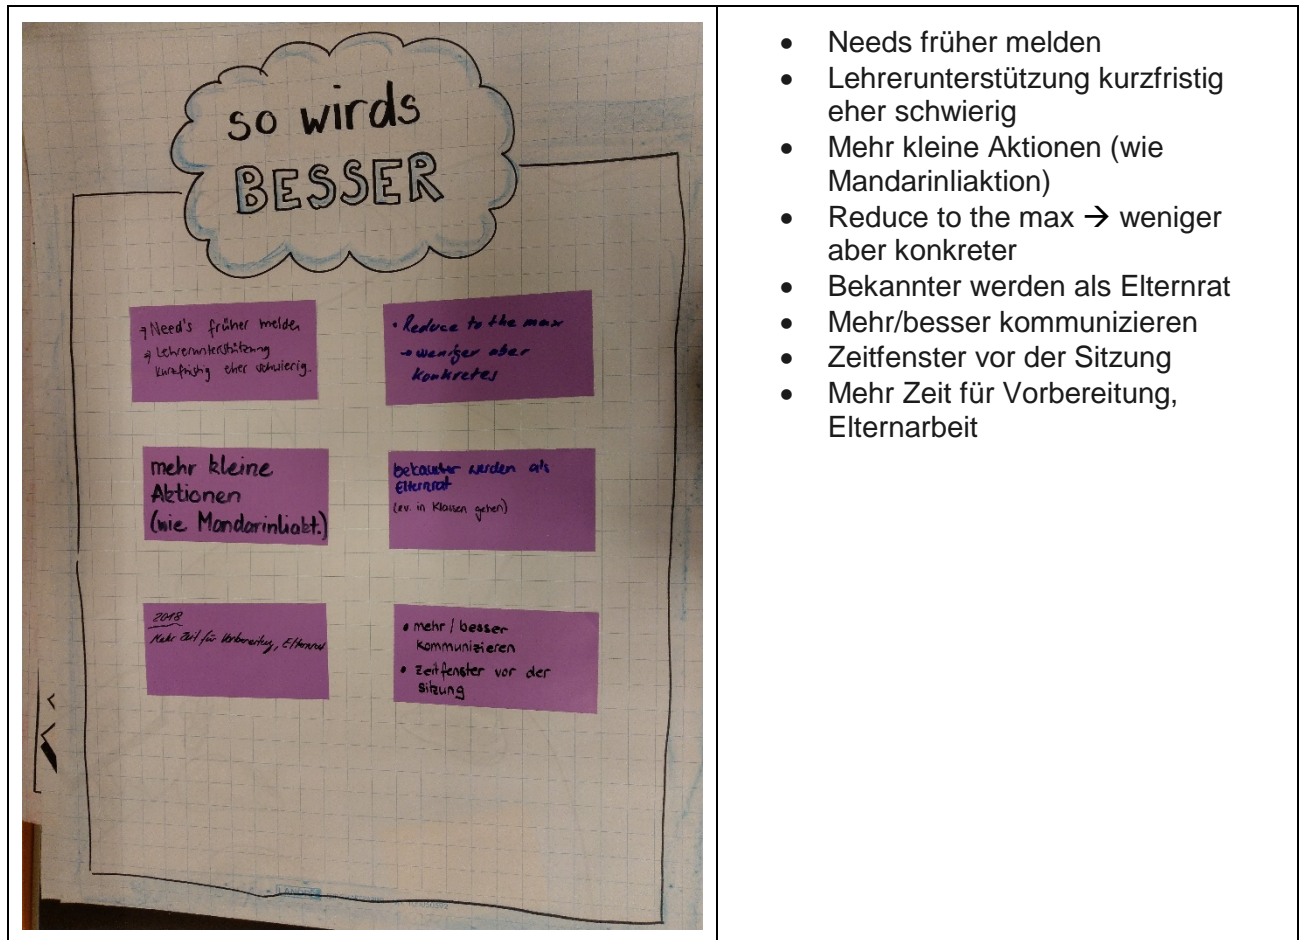 so wirds
BESSER
→ Need's früher melden
→ Lehrerunterstützung
kurzfristig eher schwierig.
• Reduce to the max
→ weniger aber
konkretes
mehr kleine
Aktionen
(wie Mandarinliakt.)
bekannter werden als
Elternrat
(ev. in Klassen gehen)
2018
Mehr Zeit für Vorbereitung, Elternrat
• mehr / besser
kommunizieren
• Zeitfenster vor der
sitzung
LANDRÉ
• Needs früher melden
• Lehrerunterstützung kurzfristig
eher schwierig
• Mehr kleine Aktionen (wie
Mandarinliaktion)
• Reduce to the max → weniger
aber konkreter
• Bekannter werden als Elternrat
• Mehr/besser kommunizieren
• Zeitfenster vor der Sitzung
• Mehr Zeit für Vorbereitung,
Elternarbeit